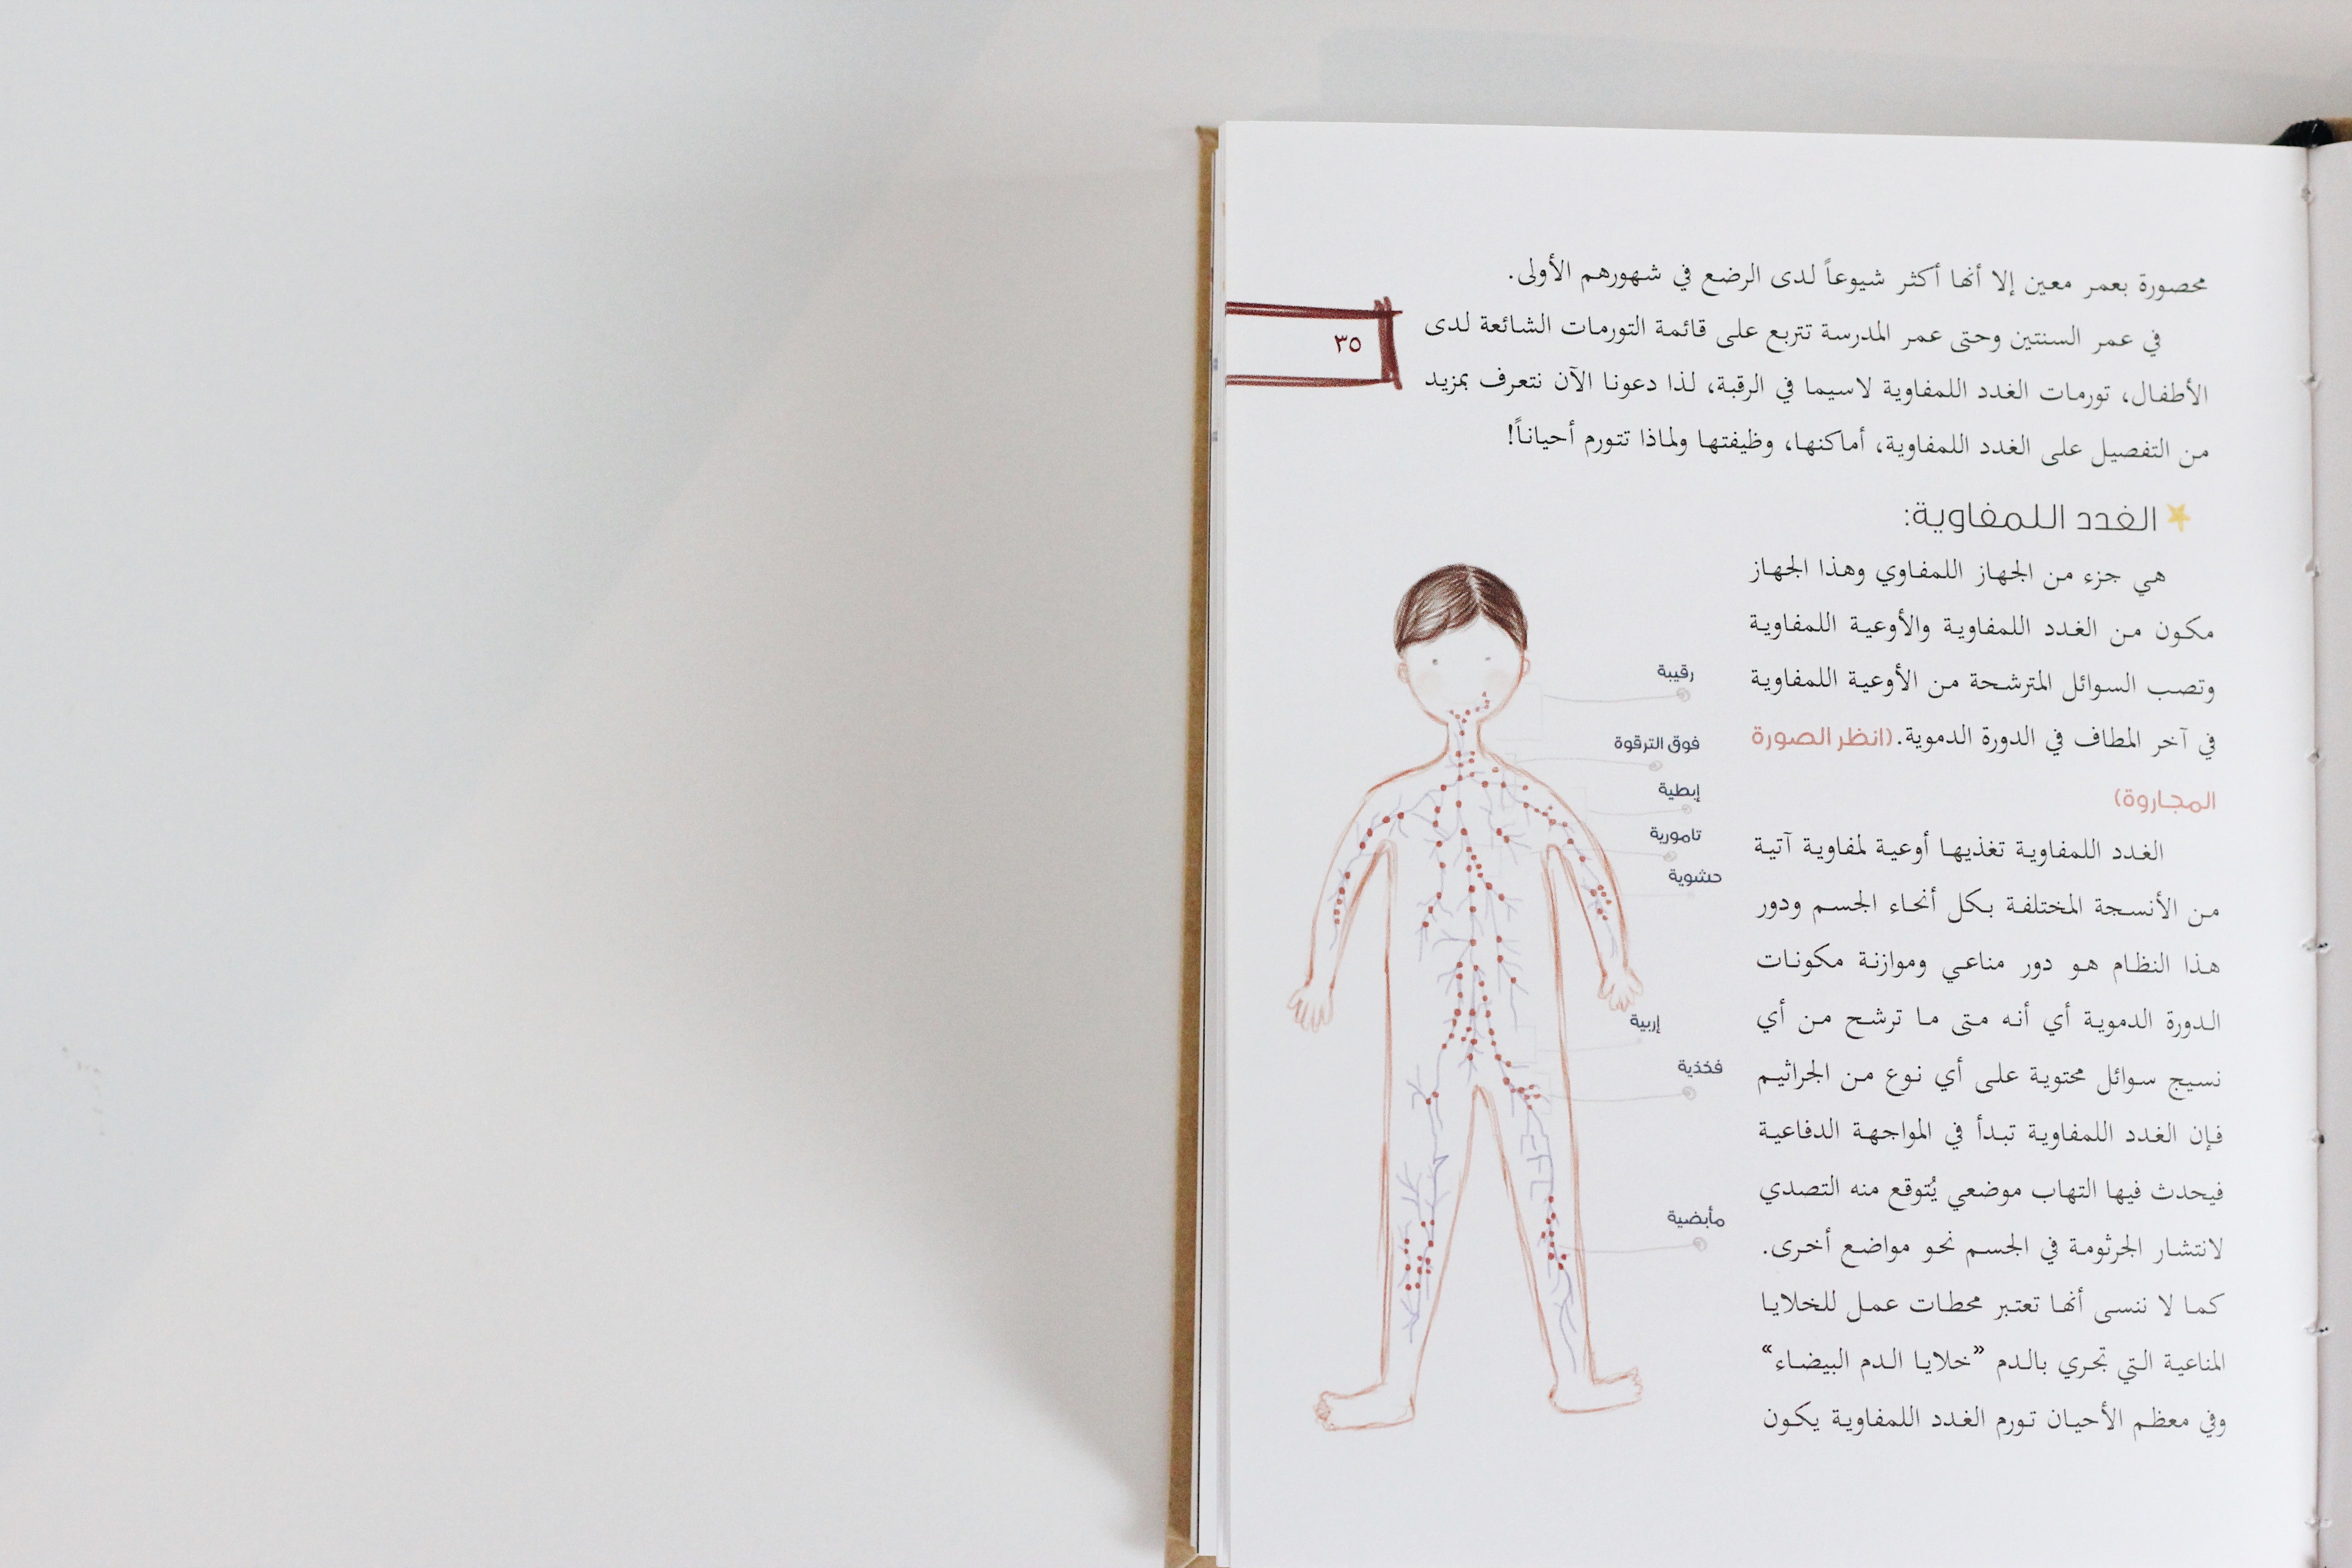 محصورة بعمر معين إلا أنها أكثر شيوعاً لدى الرضع في شهورهم الأولى.
في عمر السنتين وحتى عمر المدرسة تتربع على قائمة التورمات الشائعة لدى
الأطفال، تورمات الغدد اللمفاوية لاسيما في الرقبة، لذا دعونا الآن نتعرف بمزيد
من التفصيل على الغدد اللمفاوية، أماكنها، وظيفتها ولماذا تتورم أحياناً!
٣٥
الغدد اللمفاوية:
هي جزء من الجهاز اللمفاوي وهذا الجهاز
مكون من الغدد اللمفاوية والأوعية اللمفاوية
وتصب السوائل المترشحة من الأوعية اللمفاوية
في آخر المطاف في الدورة الدموية. (انظر الصورة
المجاروة)
الغدد اللمفاوية تغذيها أوعية لمفاوية آتية
من الأنسجة المختلفة بكل أنحاء الجسم ودور
هذا النظام هو دور مناعي وموازنة مكونات
الدورة الدموية أي أنه متى ما ترشح من أي
نسيج سوائل محتوية على أي نوع من الجراثيم
فإن الغدد اللمفاوية تبدأ في المواجهة الدفاعية
فيحدث فيها التهاب موضعي يُتوقع منه التصدي
لانتشار الجرثومة في الجسم نحو مواضع أخرى.
كما لا ننسى أنها تعتبر محطات عمل للخلايا
المناعية التي تجري بالدم «خلايا الدم البيضاء»
وفي معظم الأحيان تورم الغدد اللمفاوية يكون
رقيبة
فوق الترقوة
إبطية
تامورية
حشوية
إربية
فخذية
مأبضية